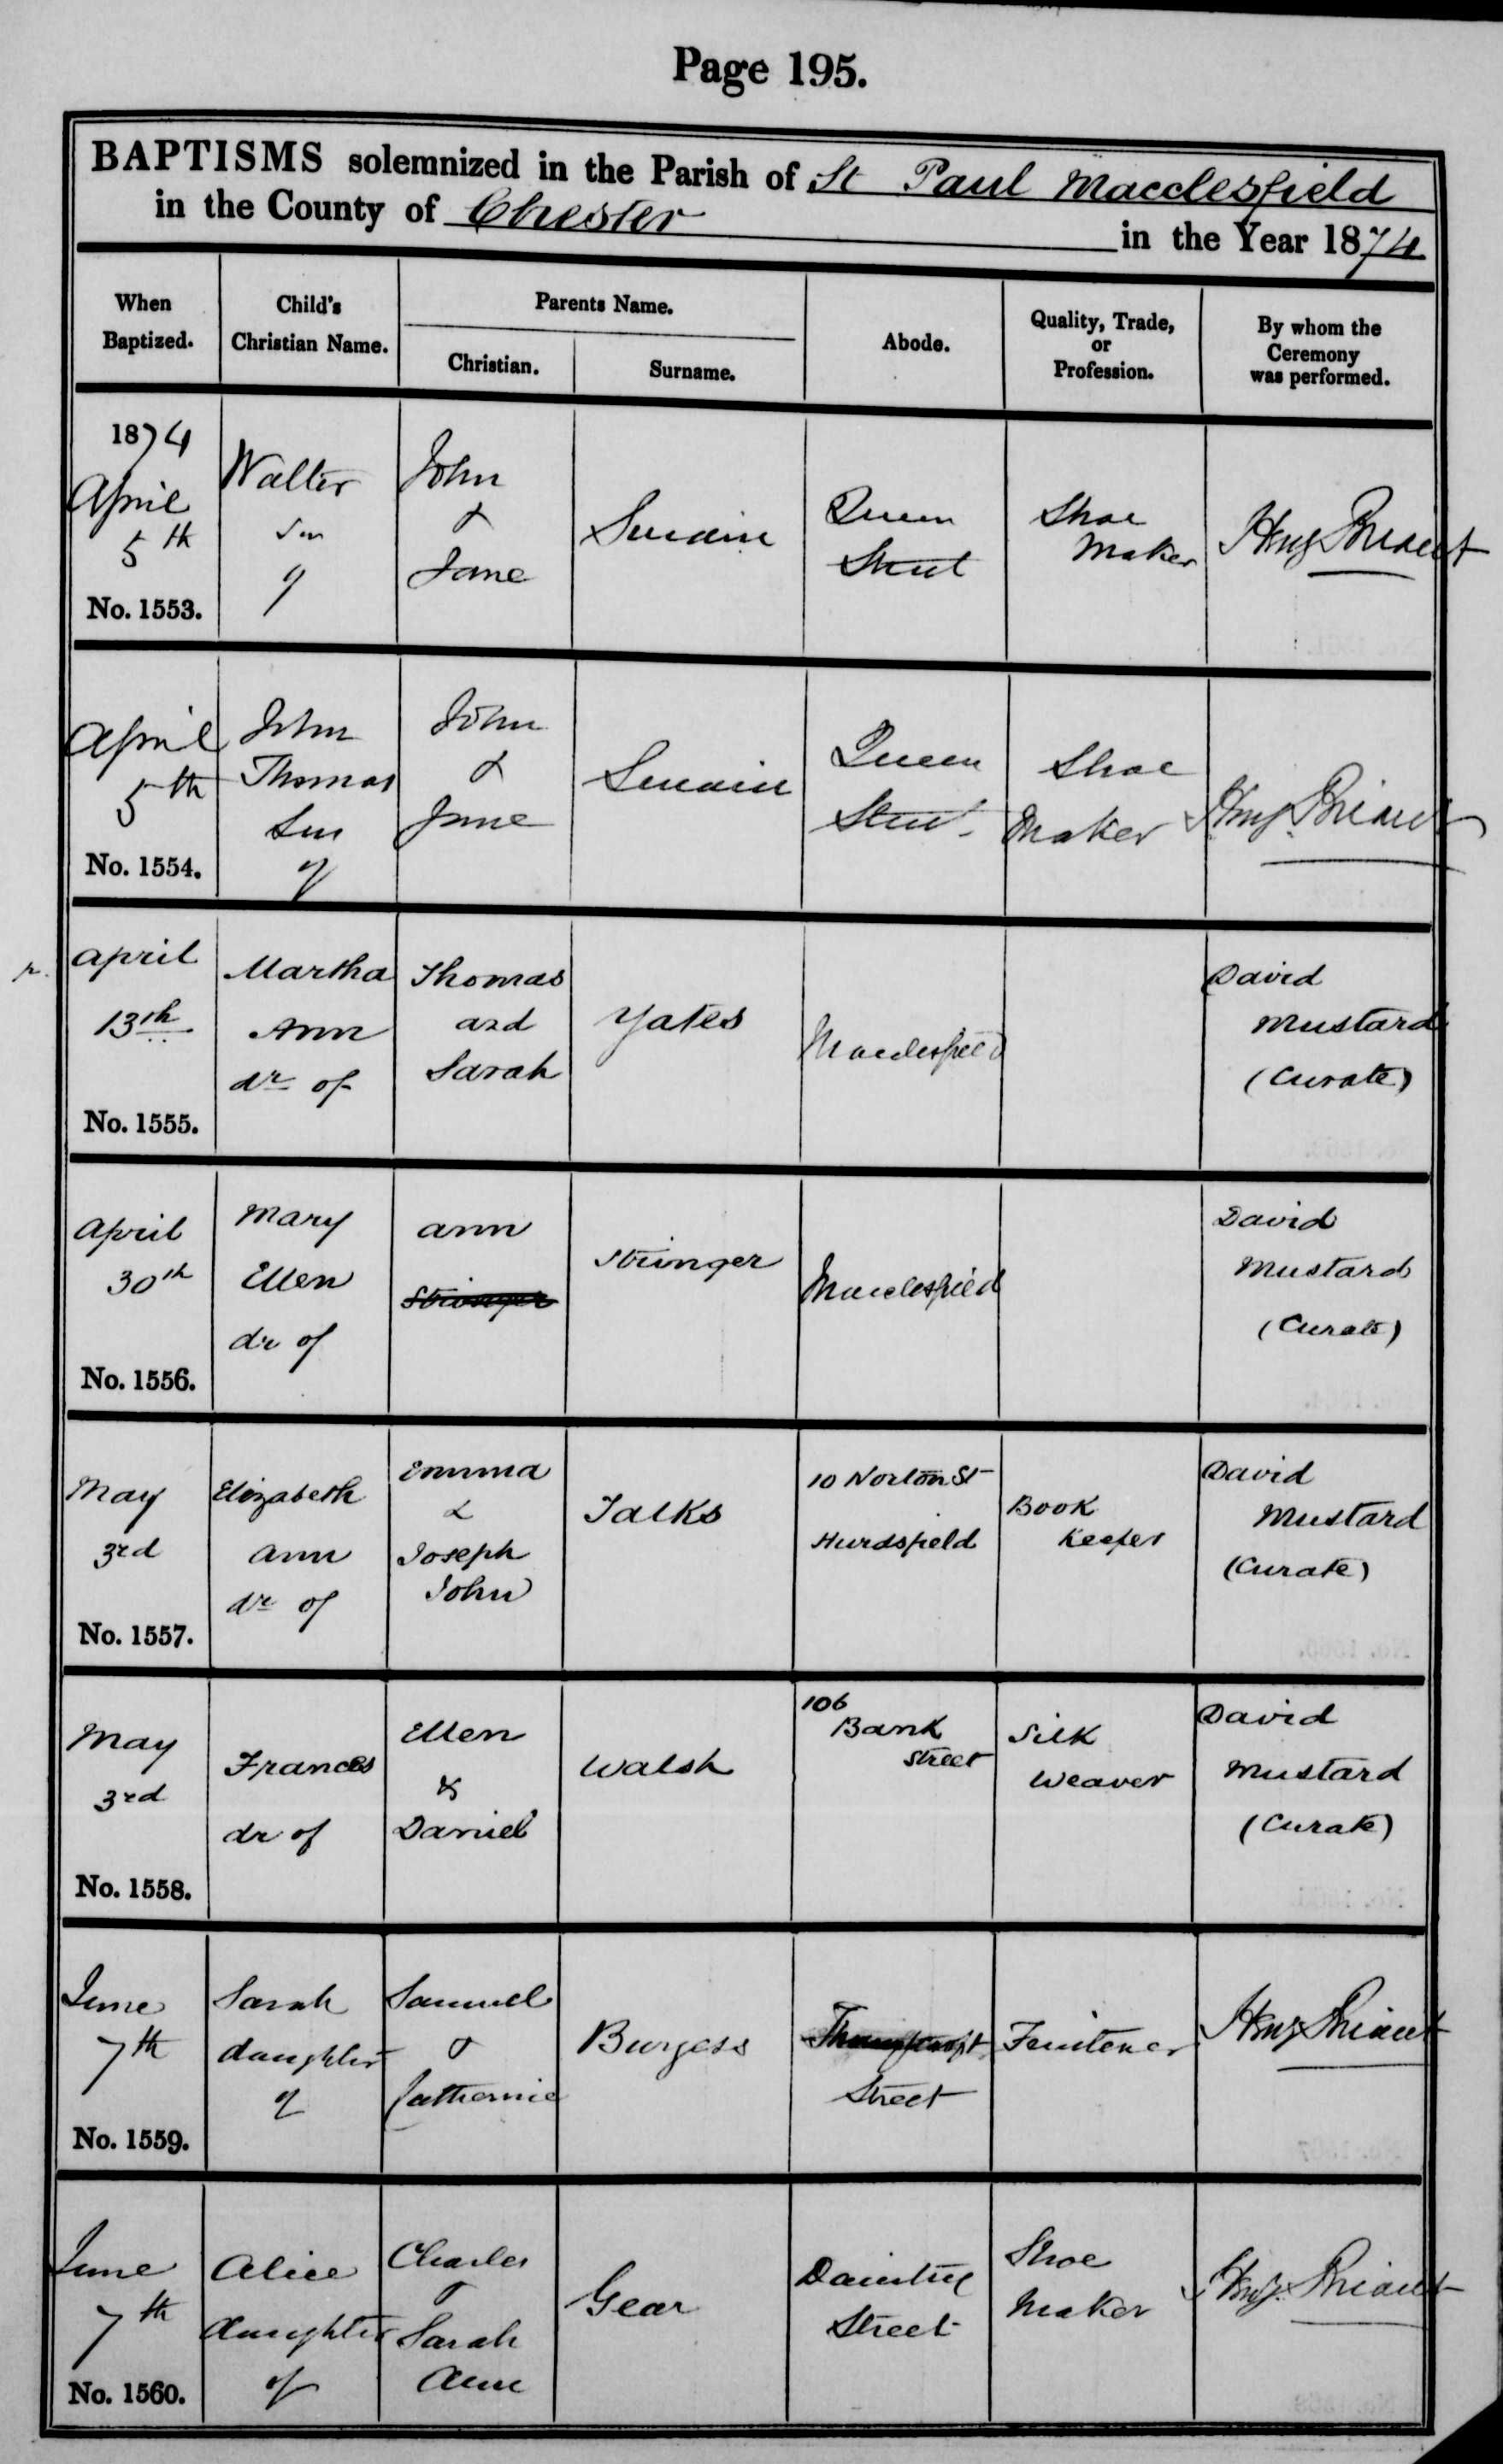 Page 195.
BAPTISMS solemnized in the Parish of St Paul Macclesfield
in the County of Chester in the Year 1874
When Baptized.
Child's Christian Name.
Parents Name.
Christian.
Surname.
Abode.
Quality, Trade, or Profession.
By whom the Ceremony was performed.
1874
April
5th
No. 1553.
Walter
Son
of
John
&
Jane
Swain
Queen
Street
Shoe
Maker
Briant
April
5th
No. 1554.
John
Thomas
Son
of
John
&
Jane
Swain
Queen
Street
Shoe
Maker
Briant
p.
April
13th
No. 1555.
Martha
Ann
dr of
Thomas
and
Sarah
Yates
Macclesfield
David
Mustard
(Curate)
April
30th
No. 1556.
Mary
Ellen
dr of
Ann
Stringer
Stringer
Macclesfield
David
Mustard
(Curate)
May
3rd
No. 1557.
Elizabeth
Ann
dr of
Emma
&
Joseph
John
Jalks
10 Norton St
Hurdsfield
Book
Keeper
David
Mustard
(Curate)
May
3rd
No. 1558.
Frances
dr of
Ellen
&
Daniel
Walsh
106
Bank
Street
Silk
Weaver
David
Mustard
(Curate)
June
7th
No. 1559.
Sarah
daughter
of
Samuel
&
Catherine
Burgess
Street
Fruiterer
Briant
June
7th
No. 1560.
Alice
daughter
of
Charles
&
Sarah
Ann
Gear
Daintry
Street
Shoe
Maker
Briant